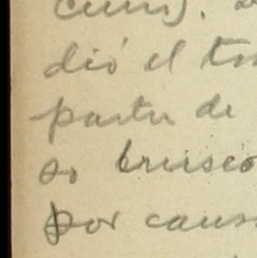 dió el
partir de
so brusco
por caus